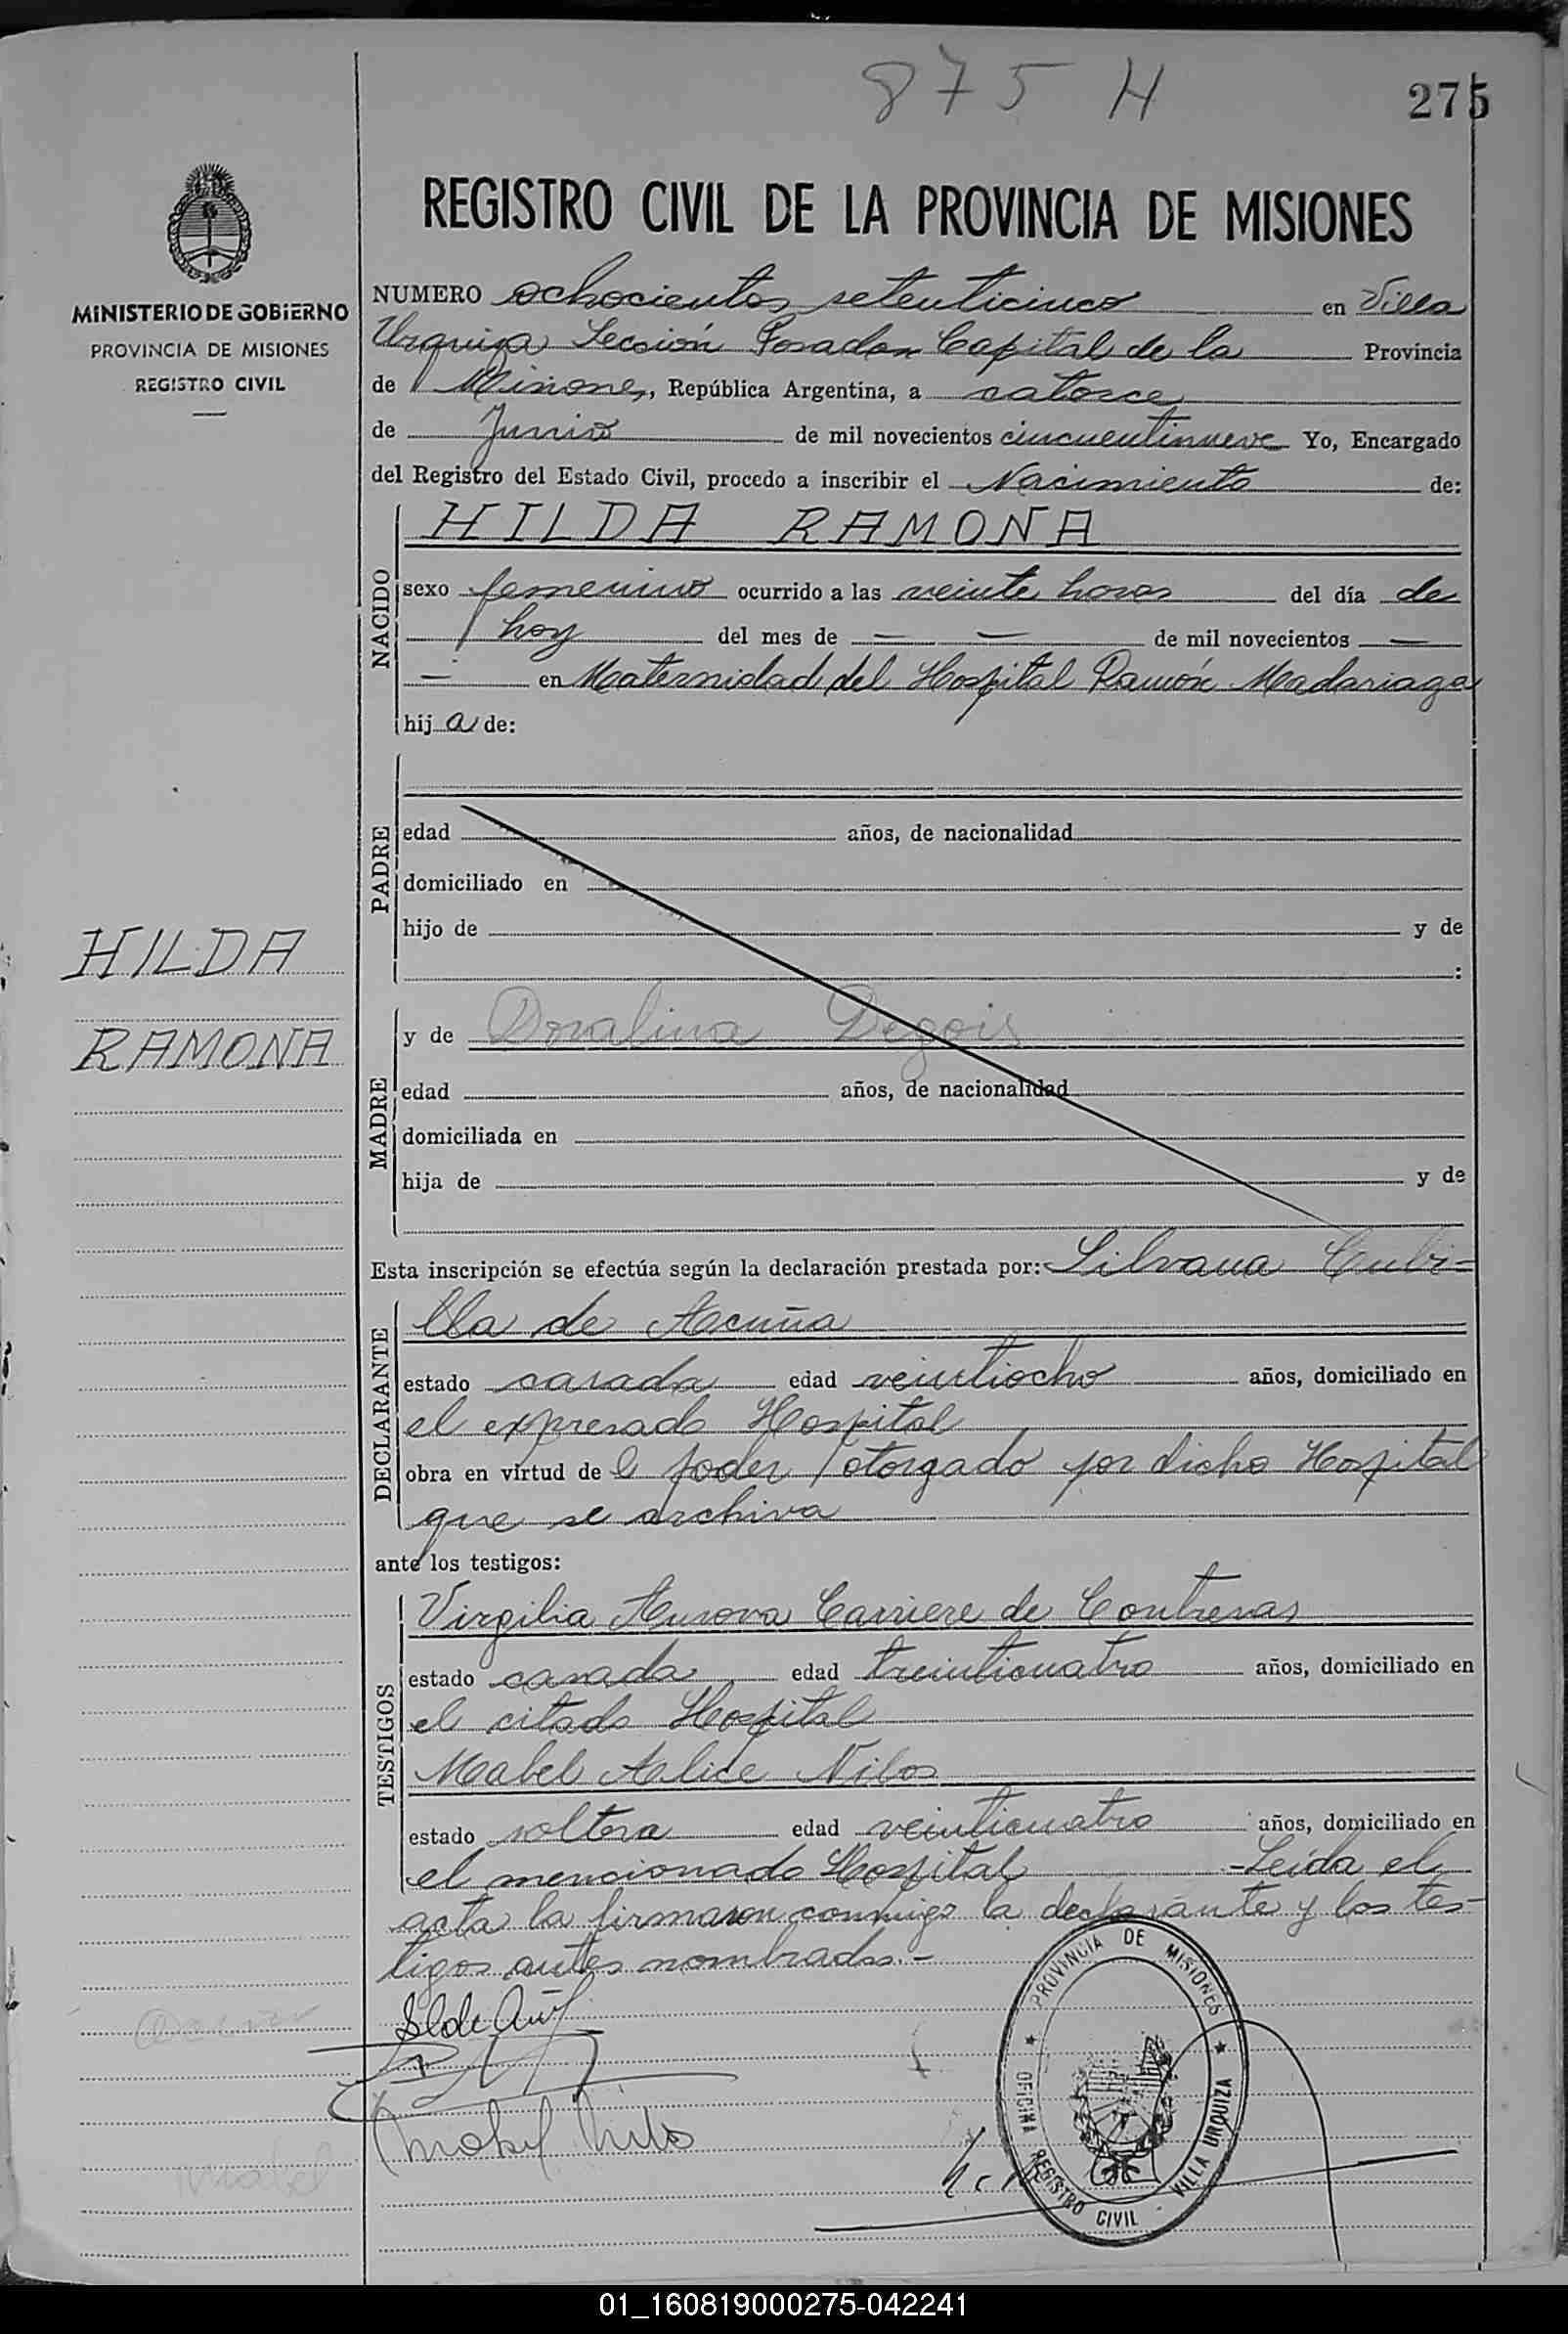 875 H
275
MINISTERIO DE GOBIERNO
PROVINCIA DE MISIONES
REGISTRO CIVIL
REGISTRO CIVIL DE LA PROVINCIA DE MISIONES
NUMERO ochocientos setenticinco en Villa
Urquiza Sección Posadas Capital de la Provincia
de Misiones, República Argentina, a catorce
de Junio de mil novecientos cincuentinueve Yo, Encargado
del Registro del Estado Civil, procedo a inscribir el Nacimiento de:
NACIDO
HILDA RAMONA
sexo femenino ocurrido a las veinte horas del día de
hoy del mes de — — de mil novecientos —
— en Maternidad del Hospital Ramón Madariaga
hij a de:
PADRE
edad años, de nacionalidad
domiciliado en
hijo de y de
:
HILDA
RAMONA
MADRE
y de Doralina Degois
edad años, de nacionalidad
domiciliada en
hija de y de
Esta inscripción se efectúa según la declaración prestada por: Silvana Cubi-
DECLARANTE
lla de Acuña
estado casada edad veintiocho años, domiciliado en
el expresado Hospital
obra en virtud de l poder otorgado por dicho Hospital
que se archiva
ante los testigos:
TESTIGOS
Virgilia Aurora Carriere de Contreras
estado casada edad treinticuatro años, domiciliado en
el citado Hospital
Mabel Alice Nilos
estado soltera edad veinticuatro años, domiciliado en
el mencionado Hospital -Leída el
acta la firmaron conmigo la declarante y los tes-
tigos antes nombrados.-
Mabel Nilos
PROVINCIA DE MISIONES
OFICINA REGISTRO CIVIL - VILLA URQUIZA
Mabel
01_160819000275-042241